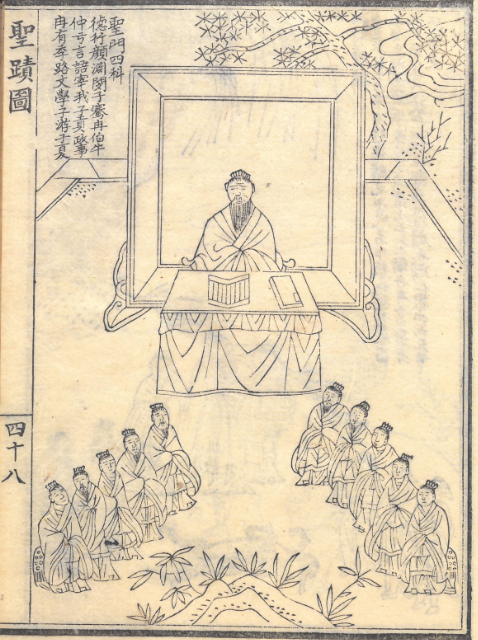 聖門四科
德行顔淵閔子騫冉伯牛
仲弓言語宰我子貢政事
冉有季路文學子游子夏
聖蹟圖
四十八